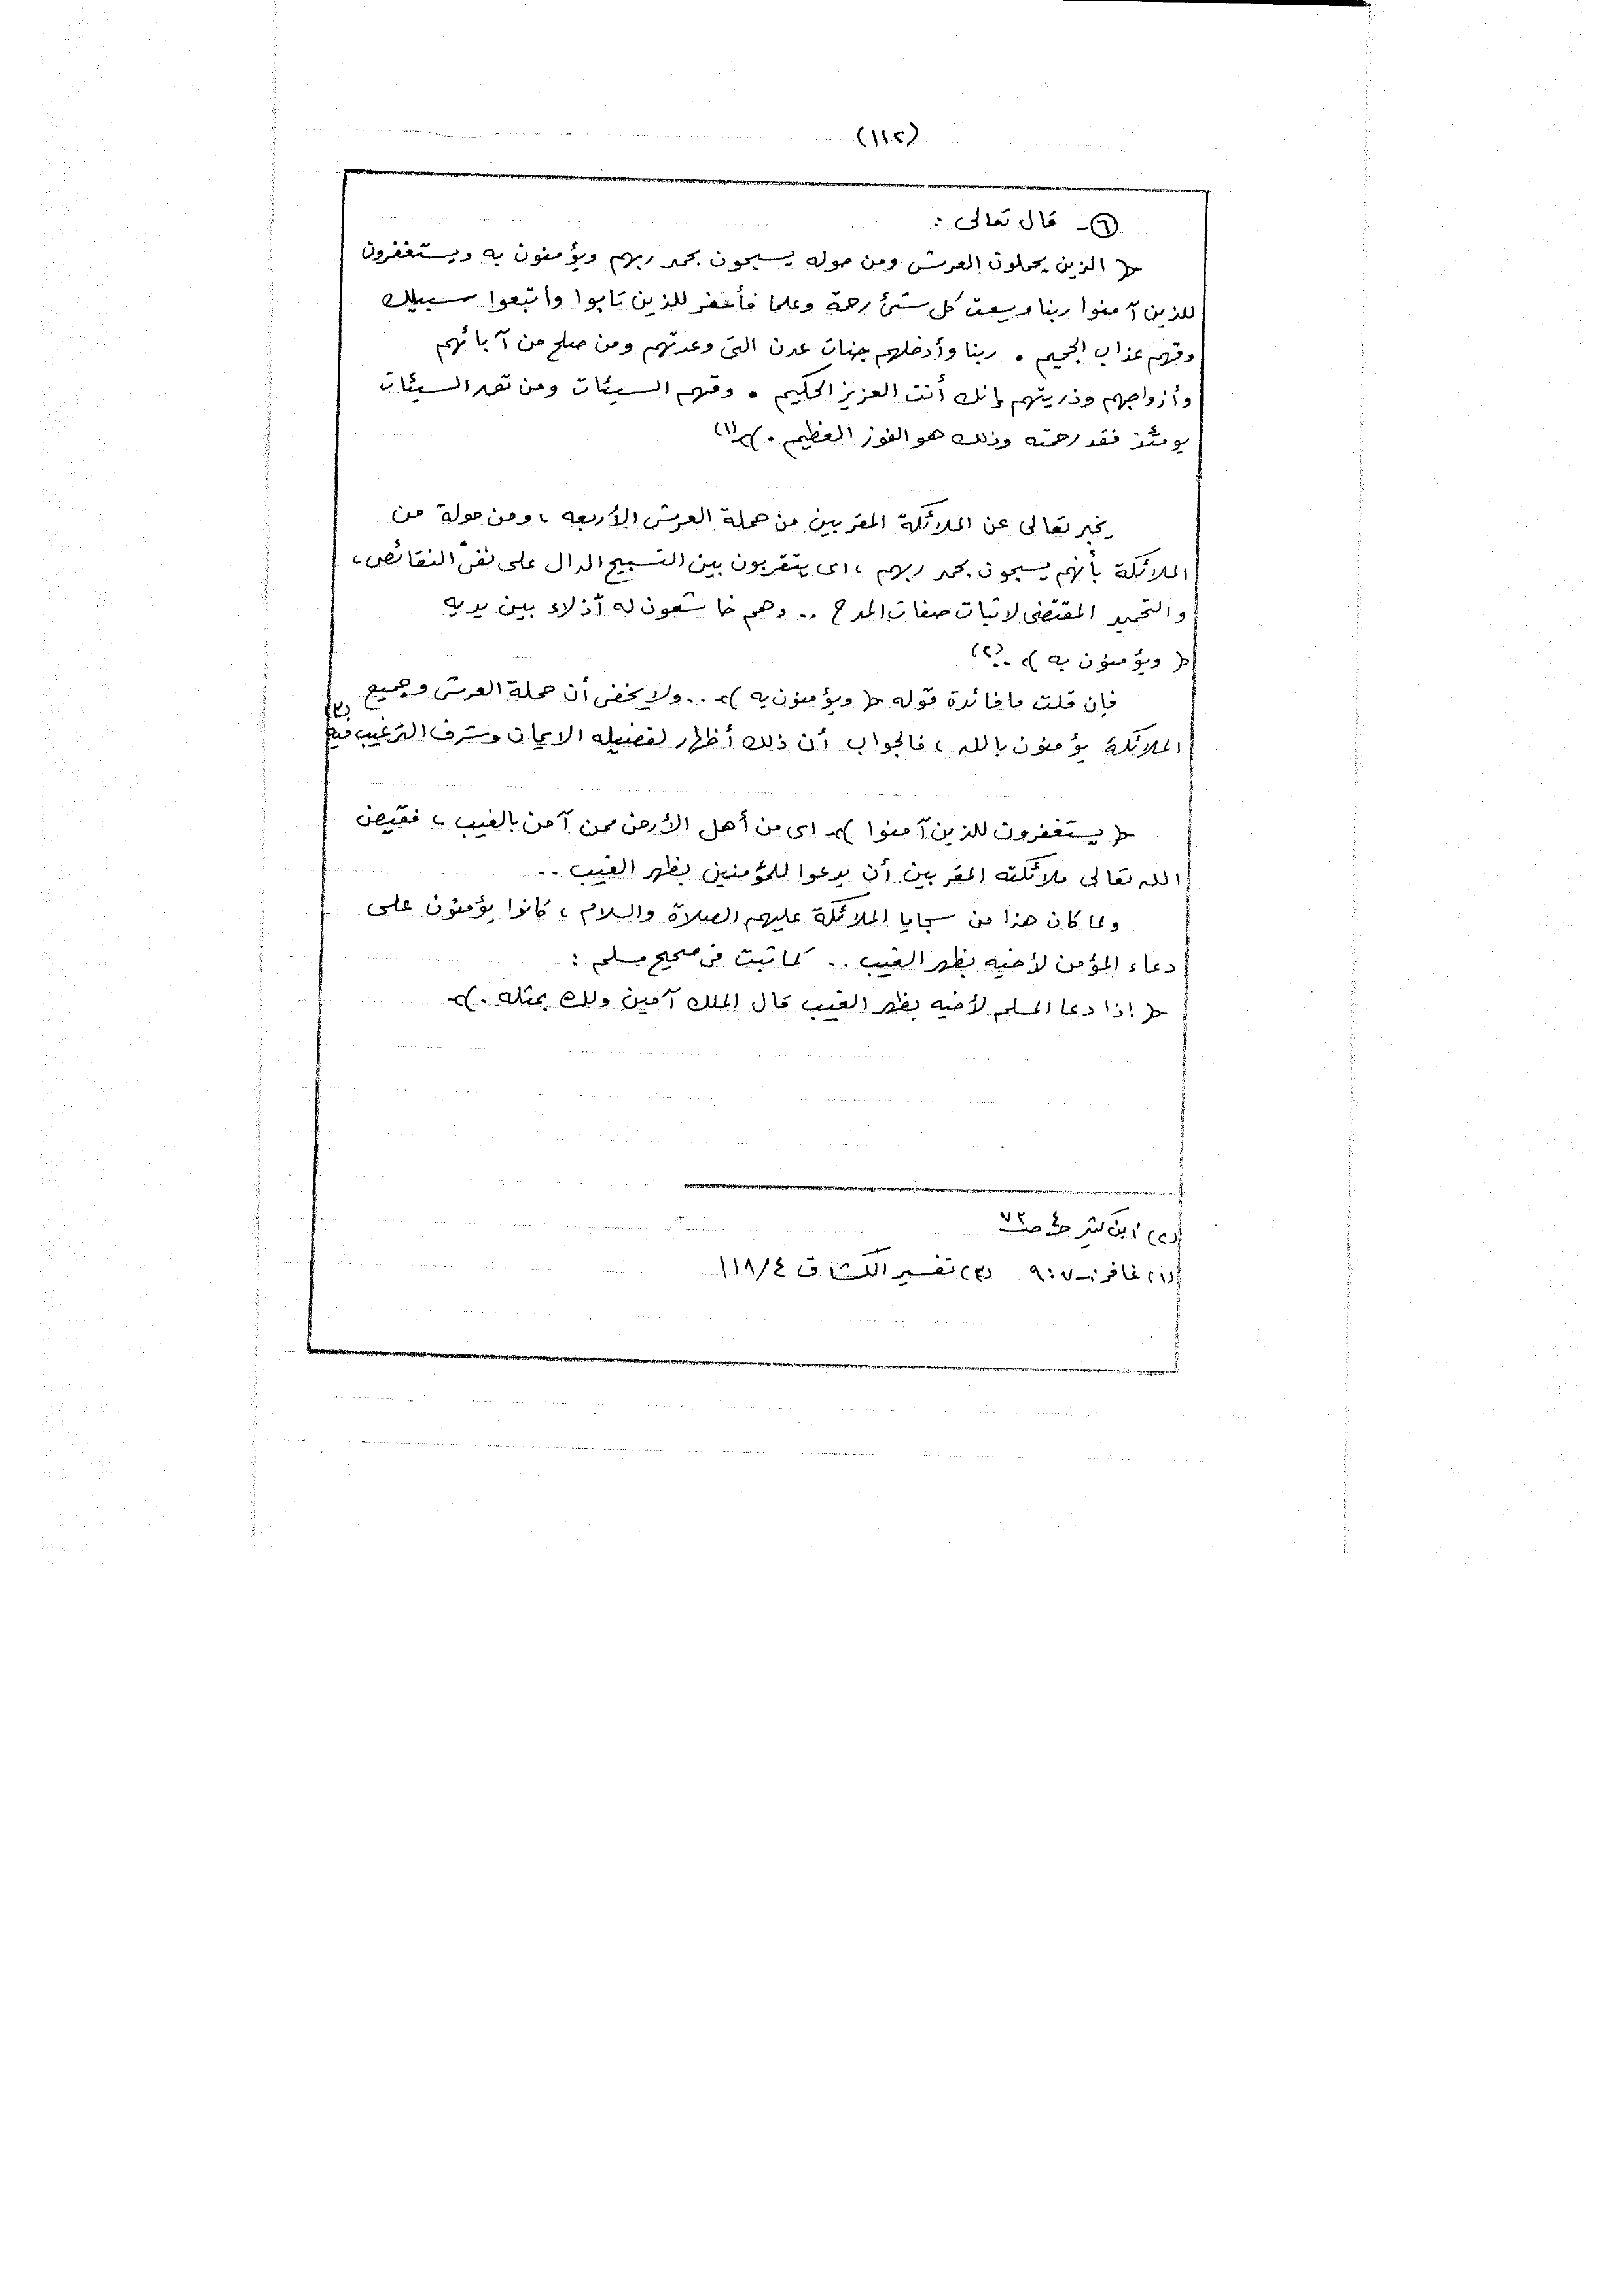 (١١٢)
(٦)- قال تعالى :
﴿ الذين يحملون العرش ومن حوله يسبحون بحمد ربهم ويؤمنون به ويستغفرون
للذين آمنوا ربنا وسعت كل شئ رحمة وعلما فأغفر للذين تابوا وأتبعوا سبيلك
وقهم عذاب الجحيم . ربنا وأدخلهم جنات عدن التى وعدتهم ومن صلح من آبائهم
وأزواجهم وذريتهم إنك أنت العزيز الحكيم . وقهم السيئات ومن تق السيئات
يومئذ فقد رحمته وذلك هو الفوز العظيم . ﴾(١)
يخبر تعالى عن الملائكة المقربين من حملة العرش الأربعه ، ومن حولة من
الملائكة بأنهم يسبحون بحمد ربهم ، اى يتقربون بين التسبيح الدال على نفى النقائص ،
والتحميد المقتضى لاثبات صفات المدح .. وهم خاشعون له أذلاء بين يديه
﴿ ويؤمنون به ﴾..(٢)
فإن قلت ما فائدة قوله ﴿ ويؤمنون به ﴾ .. ولا يخفى أن حملة العرش وجميع
الملائكة يؤمنون بالله ، فالجواب أن ذلك أظهار لفضيله الايمان وشرف الترغيب فيه (٣)
﴿ يستغفرون للذين آمنوا ﴾ اى من أهل الأرض ممن آمن بالغيب ، فقيض
الله تعالى ملائكته المقربين أن يدعوا للمؤمنين بظهر الغيب ..
ولما كان هذا من سجايا الملائكة عليهم الصلاة والسلام ، كانوا يؤمنون على
دعاء المؤمن لأخيه بظهر الغيب .. كما ثبت فى صحيح مسلم :
﴿ إذا دعا المسلم لأخيه بظهر الغيب قال الملك آمين ولك بمثله . ﴾
(٢) ابن كثير ح٤ ص٧٢
(١) غافر: ٧-٩ (٣) تفسير الكشاف ٤/١١٨